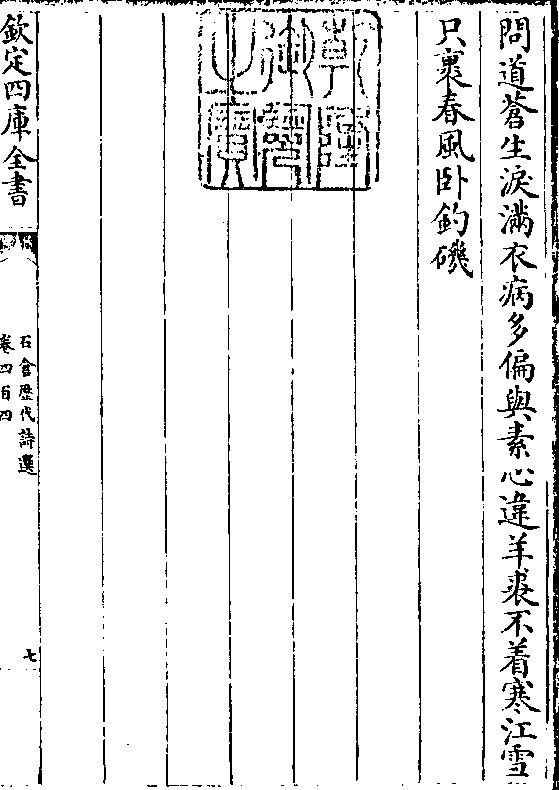 問道蒼生淚滿衣病多偏與素心違羊裘不着寒江雪
只裹春風卧釣磯
乾隆御覽之寶
欽定四庫全書
石倉歷代詩選
卷四百四
七